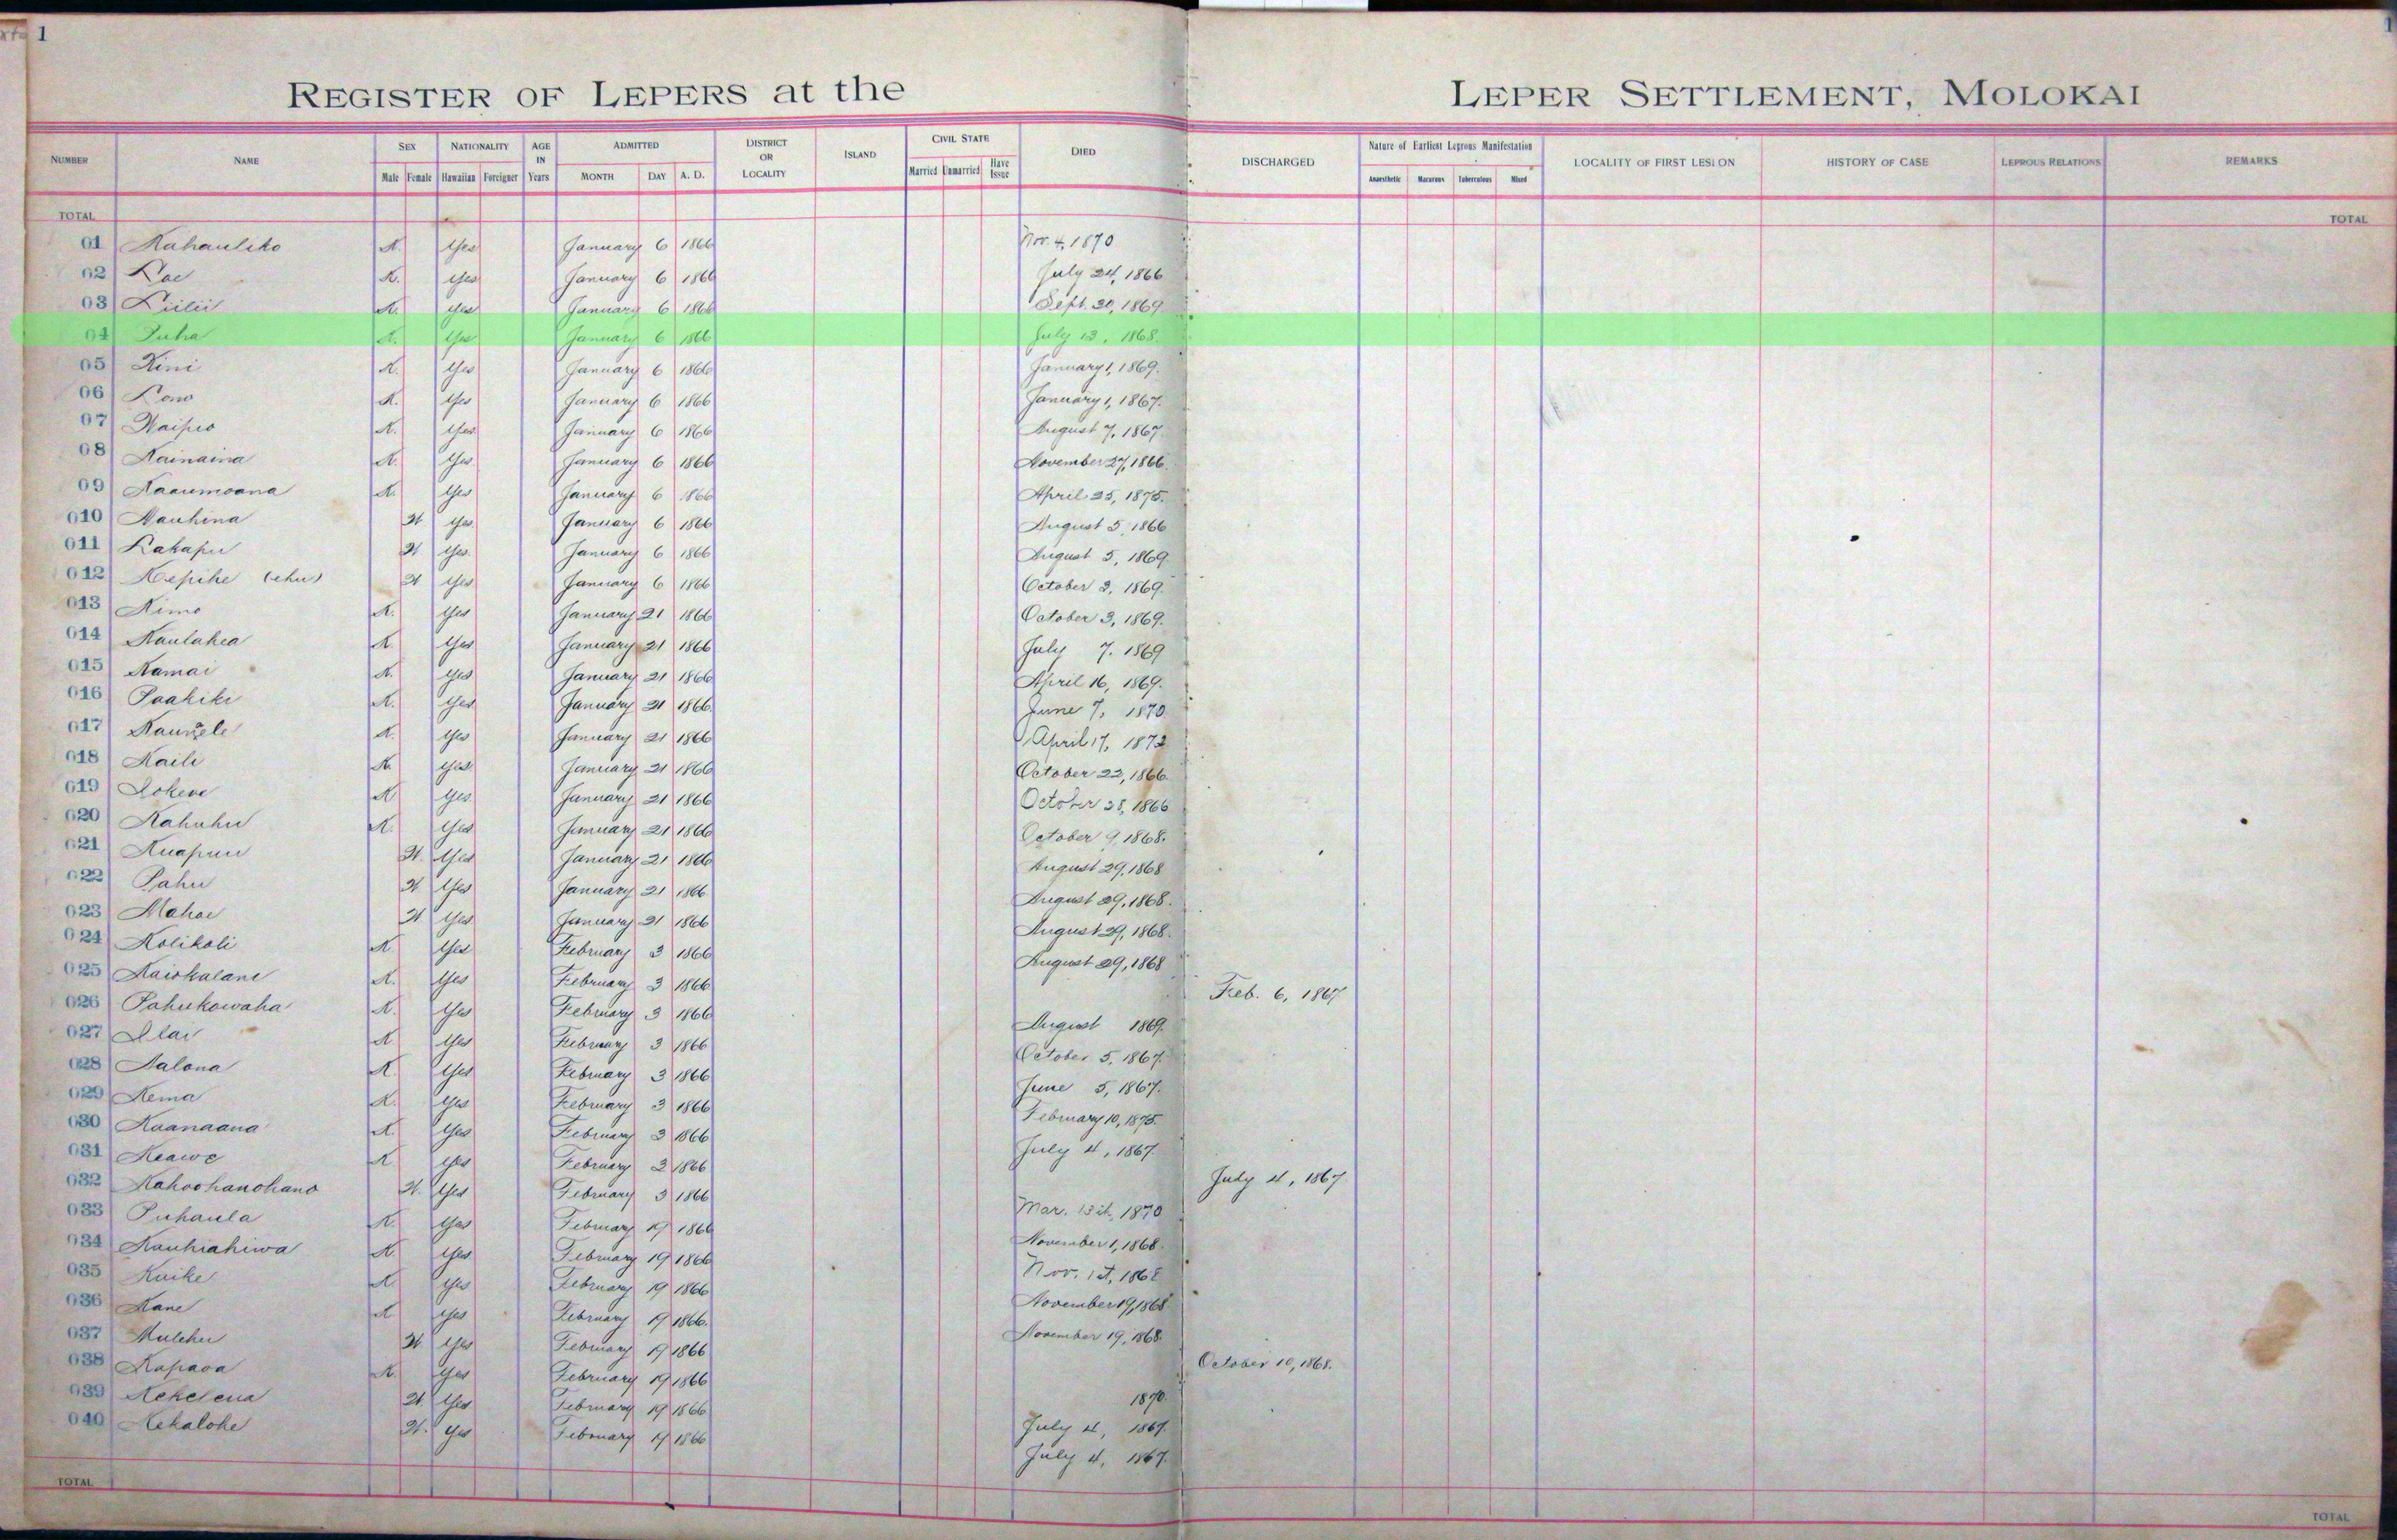 1
REGISTER OF LEPERS at the LEPER SETTLEMENT, MOLOKAI
NUMBER NAME SEX Male Female NATIONALITY Hawaiian Foreigner AGE IN Years ADMITTED MONTH DAY A. D. DISTRICT OR LOCALITY ISLAND CIVIL STATE Married Unmarried Have Issue DIED DISCHARGED Nature of Earliest Leprous Manifestation Anaesthetic Macurous Tuberculous Mixed LOCALITY OF FIRST LESION HISTORY OF CASE LEPROUS RELATIONS REMARKS
TOTAL TOTAL
01 Kahauliko K. Yes January 6 1866 Nov. 4, 1870
02 Loe K. Yes January 6 1866 July 24, 1866
03 Liilii K. Yes January 6 1866 Sept. 30, 1869
04 Puha K. Yes January 6 1866 July 13, 1868.
05 Kini K. Yes January 6 1866 January 1, 1869.
06 Lono K. Yes January 6 1866 January 1, 1867.
07 Waipio K. Yes January 6 1866 August 7, 1867.
08 Kainaina K. Yes January 6 1866 November 27, 1866.
09 Kaaumoana K. Yes January 6 1866 April 25, 1875.
010 Nauhina W Yes January 6 1866 August 5, 1866
011 Lakapu W Yes January 6 1866 August 5, 1869.
012 Kepihe (ehu) W Yes January 6 1866 October 3, 1869.
013 Kimo K. Yes January 21 1866 October 3, 1869.
014 Kaulahea K. Yes January 21 1866 July 7. 1869
015 Kamai K. Yes January 21 1866 April 16, 1869.
016 Paakiki K. Yes January 21 1866 June 7, 1870
017 K. Yes January 21 1866 April 17, 1872
018 Kaili K Yes January 21 1866 October 22, 1866.
019 Lokene K Yes January 21 1866 October 28, 1866
020 Kahuhu K. Yes January 21 1866 October 9, 1868.
021 Kuapuu W. Yes January 21 1866 August 29, 1868
022 Pahu W Yes January 21 1866 August 29, 1868.
023 Mahoe W Yes January 21 1866 August 29, 1868.
024 Kolikoli K. Yes February 3 1866 August 29, 1868
025 Kaiokalani K. Yes February 3 1866 Feb. 6, 1867
026 Pahukowaha K. Yes February 3 1866 August 1869.
027 Ilai K Yes February 3 1866 October 5, 1867.
028 Aalona K. Yes February 3 1866 June 5, 1867.
029 Kema K. Yes February 3 1866 February 10, 1875.
030 Kaanaana K. Yes February 3 1866 July 4, 1867
031 Keawe K Yes February 3 1866 July 4, 1867
032 Kahoohanohano W. Yes February 3 1866 Mar. 13th, 1870
033 Puhaula K. Yes February 19 1866 November 1, 1868.
034 Kauhiahiwa K. Yes February 19 1866 Nov. 1st, 1868
035 Kuike K Yes February 19 1866 November 19, 1868
036 Kane K Yes February 19 1866. November 19, 1868.
037 Mulehu W Yes February 19 1866 October 10, 1868.
038 Kapaoa K. Yes February 19 1866 1870.
039 Kekelena W Yes February 19 1866 July 4, 1867.
040 Kekalohe W. Yes February 19 1866 July 4, 1867.
TOTAL TOTAL